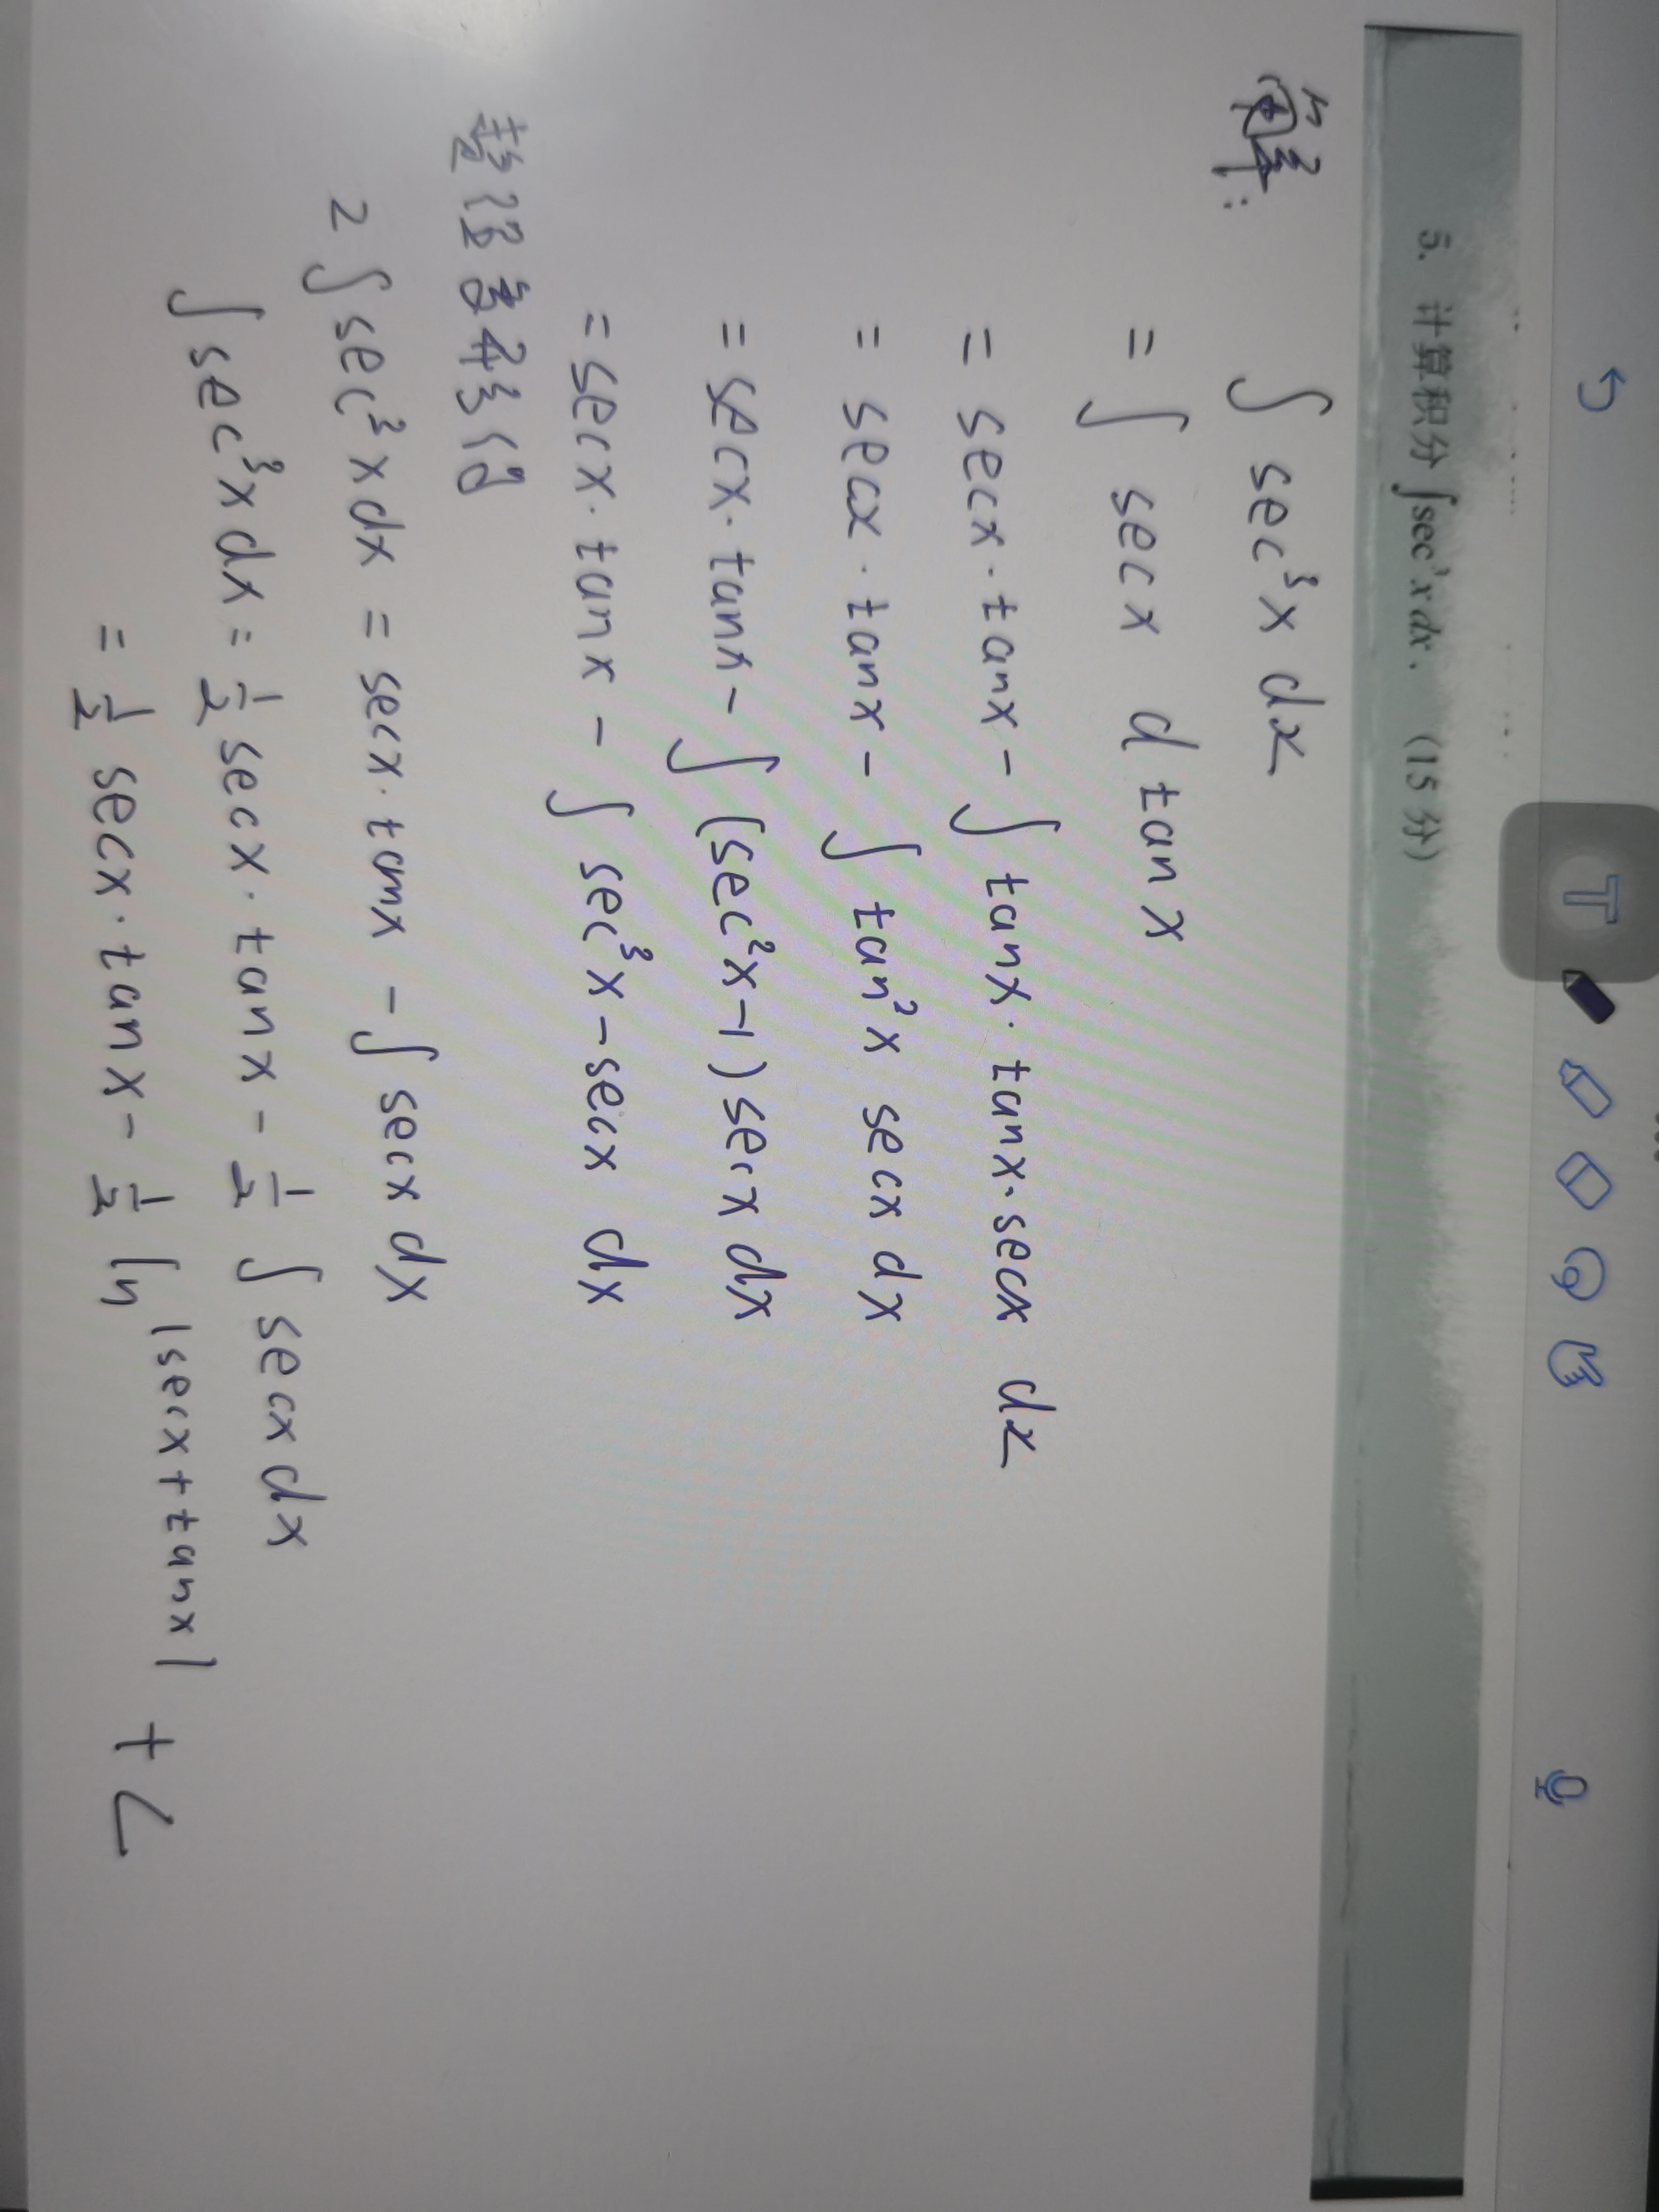 5. 计算积分 ∫sec³x dx. (15 分)
解: ∫ sec³x dx
= ∫ secx d tanx
= secx·tanx - ∫ tanx·tanx·secx dx
= secx·tanx - ∫ tan²x secx dx
= secx·tanx - ∫ (sec²x-1)secx dx
= secx·tanx - ∫ sec³x-secx dx
整理
2∫sec³xdx = secx·tanx - ∫secx dx
∫sec³xdx = 1/2 secx·tanx - 1/2 ∫ secx dx
= 1/2 secx·tanx - 1/2 ln |secx+tanx| + C